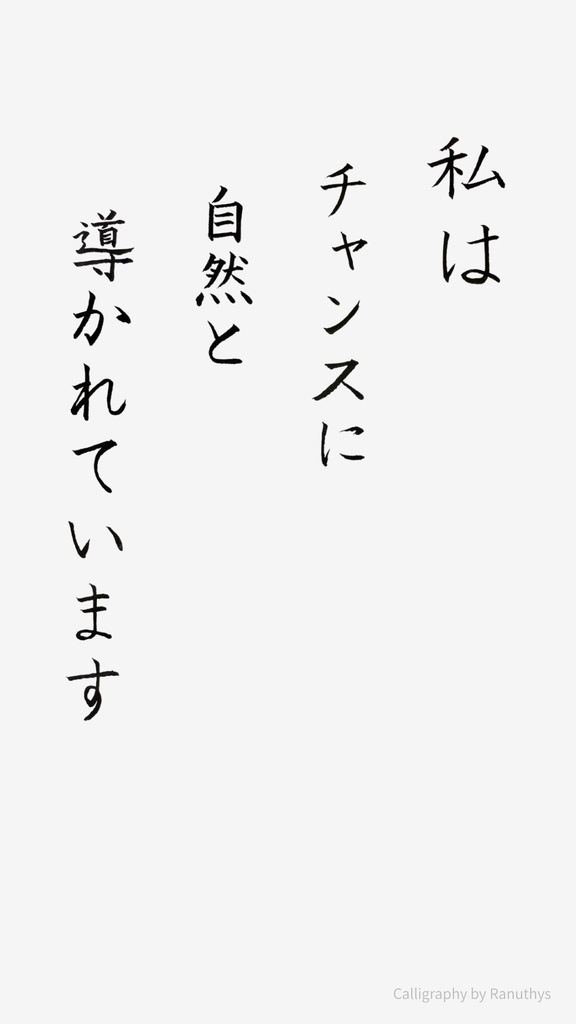 私は
チャンスに
自然と
導かれています
Calligraphy by Ranuthys